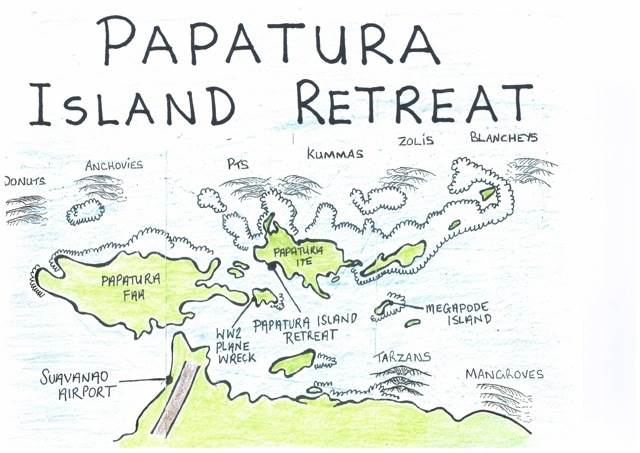 PAPATURA
ISLAND RETREAT
DONUTS
ANCHOVIES
PTS
KUMMAS
ZOLIS
BLANCHEYS
PAPATURA
FAA
PAPATURA
ITE
WW2
PLANE
WRECK
PAPATURA ISLAND
RETREAT
MEGAPODE
ISLAND
SUAVANAO
AIRPORT
TARZANS
MANGROVES